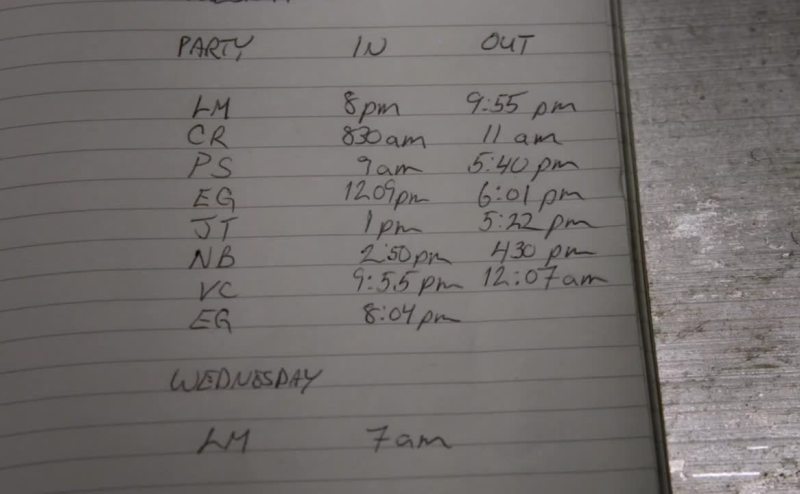 PARTY IN OUT
LM 8pm 9:55 pm
CR 830am 11 am
PS 9am 5:40 pm
EG 1209pm 6:01 pm
JT 1pm 5:22 pm
NB 2:50pm 430 pm
VC 9:55pm 12:07am
EG 8:04pm
WEDNESDAY
LM 7am